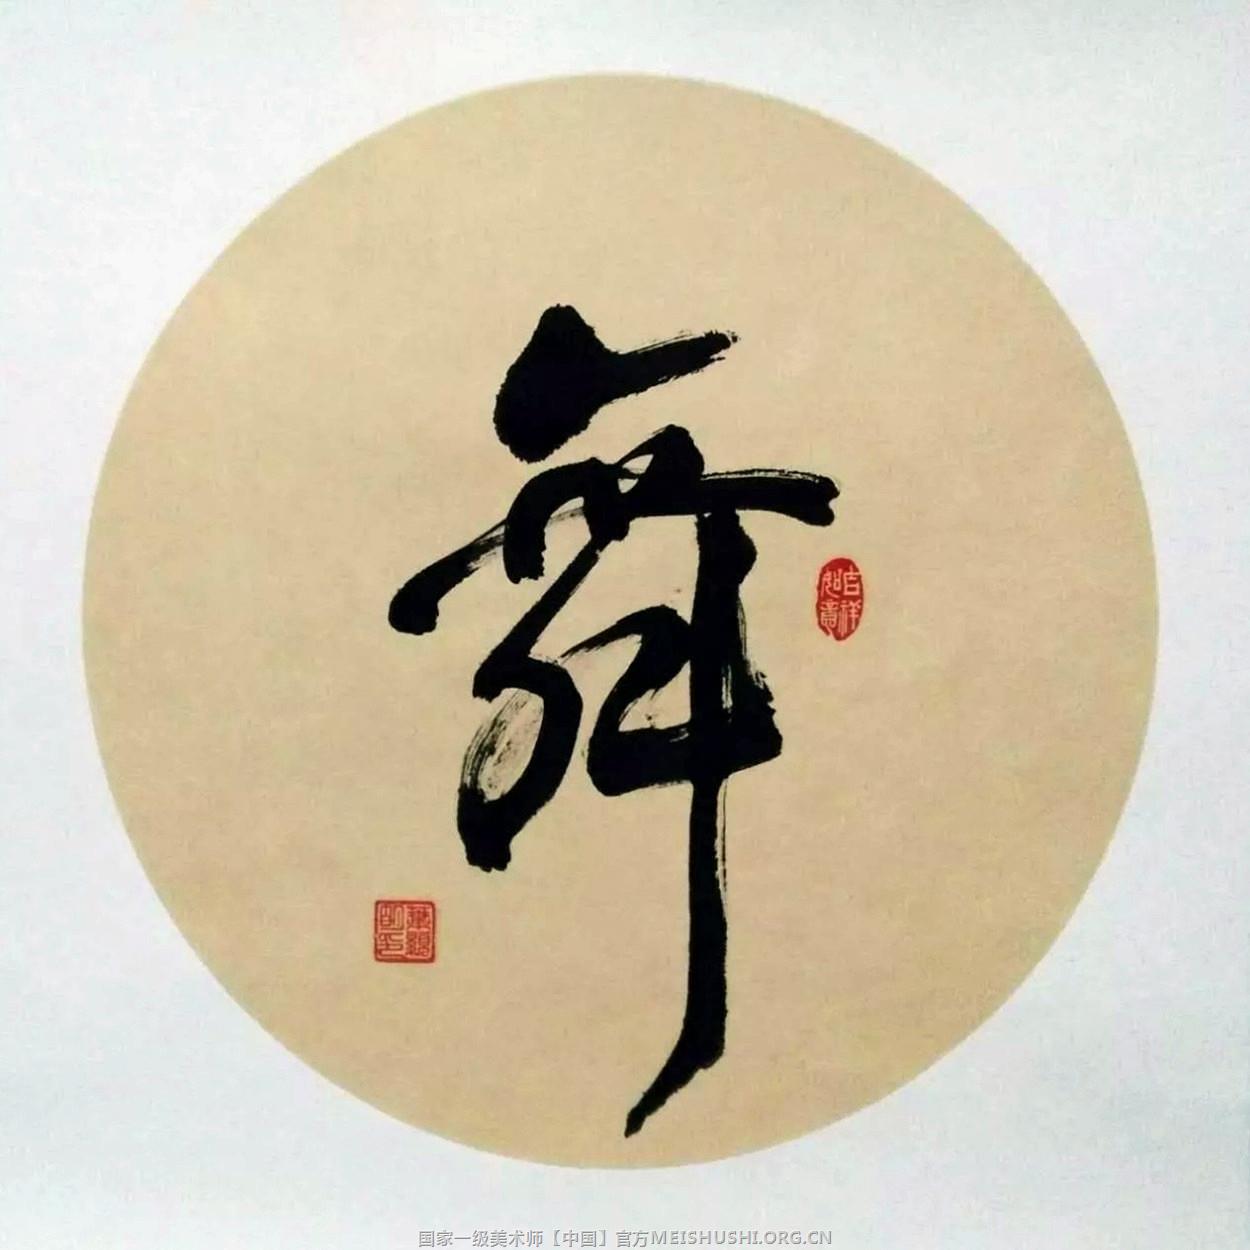 舞
吉祥
如意
国家一级美术师［中国］官方MEISHUSHI.ORG.CN